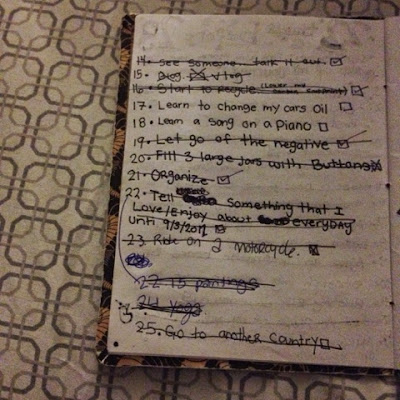 14. see someone.. talk it out.
15. Blog. Vlog
16. Start to recycle (
17. Learn to change my cars Oil
18. Learn a song on a Piano
19. Let go of the negative
20. Fill 3 large jars with Buttons
21. Organize
22. Tell something that I
Love/Enjoy about everyDAY
Until 9/3/2012
23 Ride on a motorcycle.
22 15 paintings
24 yoga
25. Go to another country